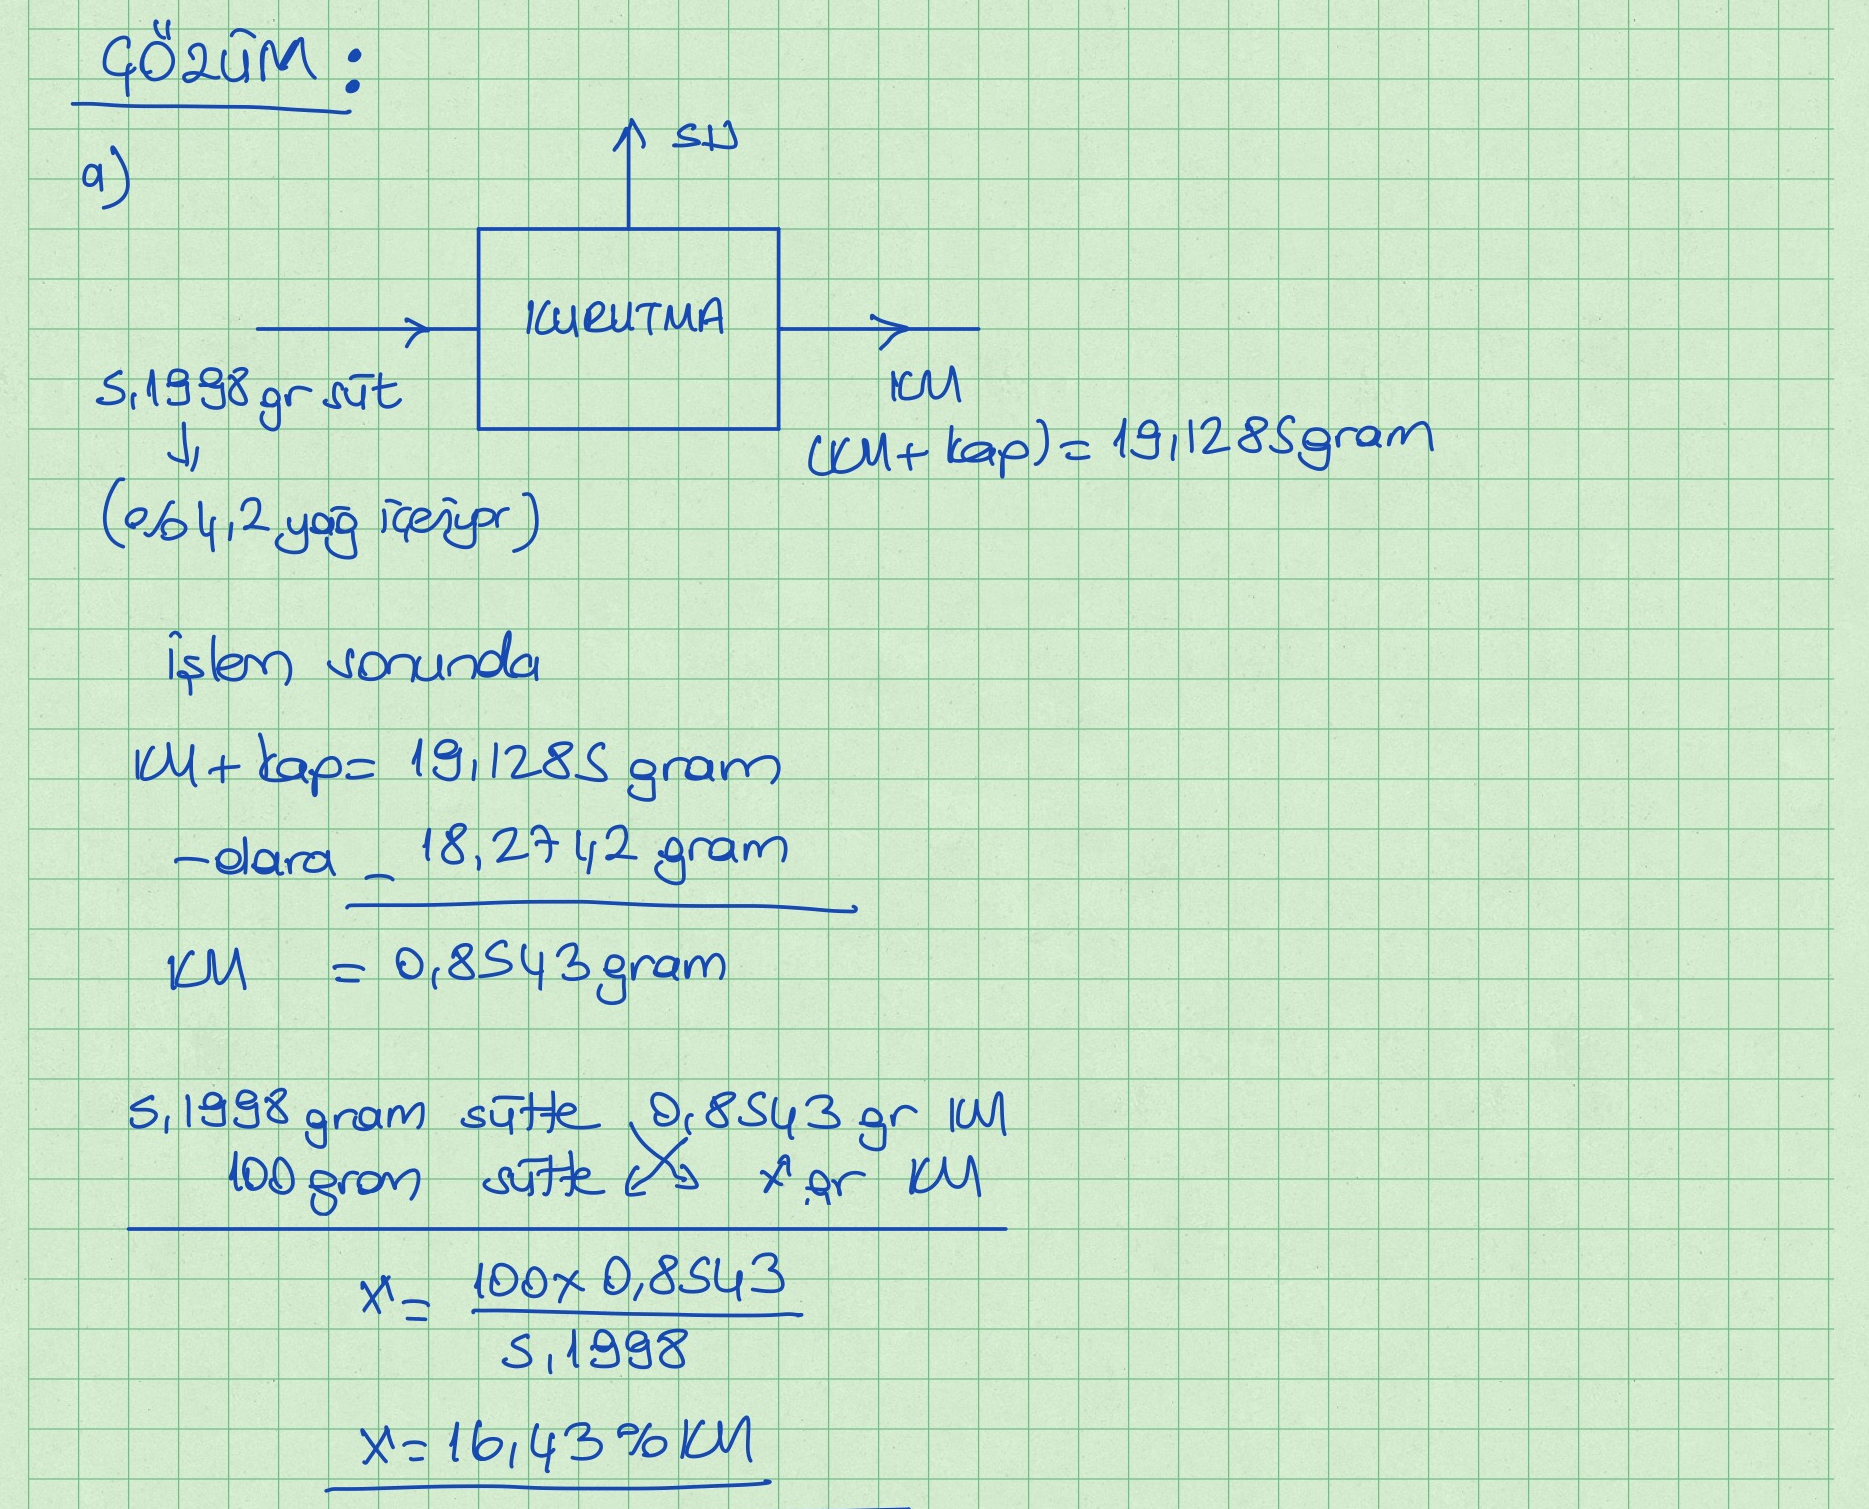 ÇÖZÜM :
a)
SU
KURUTMA
5,1998 gr süt
KM
(KM + kap) = 19,1285 gram
(%4,2 yağ içeriyor)
işlem sonunda
KM + kap = 19,1285 gram
- dara - 18,2742 gram
KM = 0,8543 gram
5,1998 gram sütte 0,8543 gr KM
100 gram sütte x gr KM
x = 100 x 0,8543
5,1998
x = 16,43 % KM